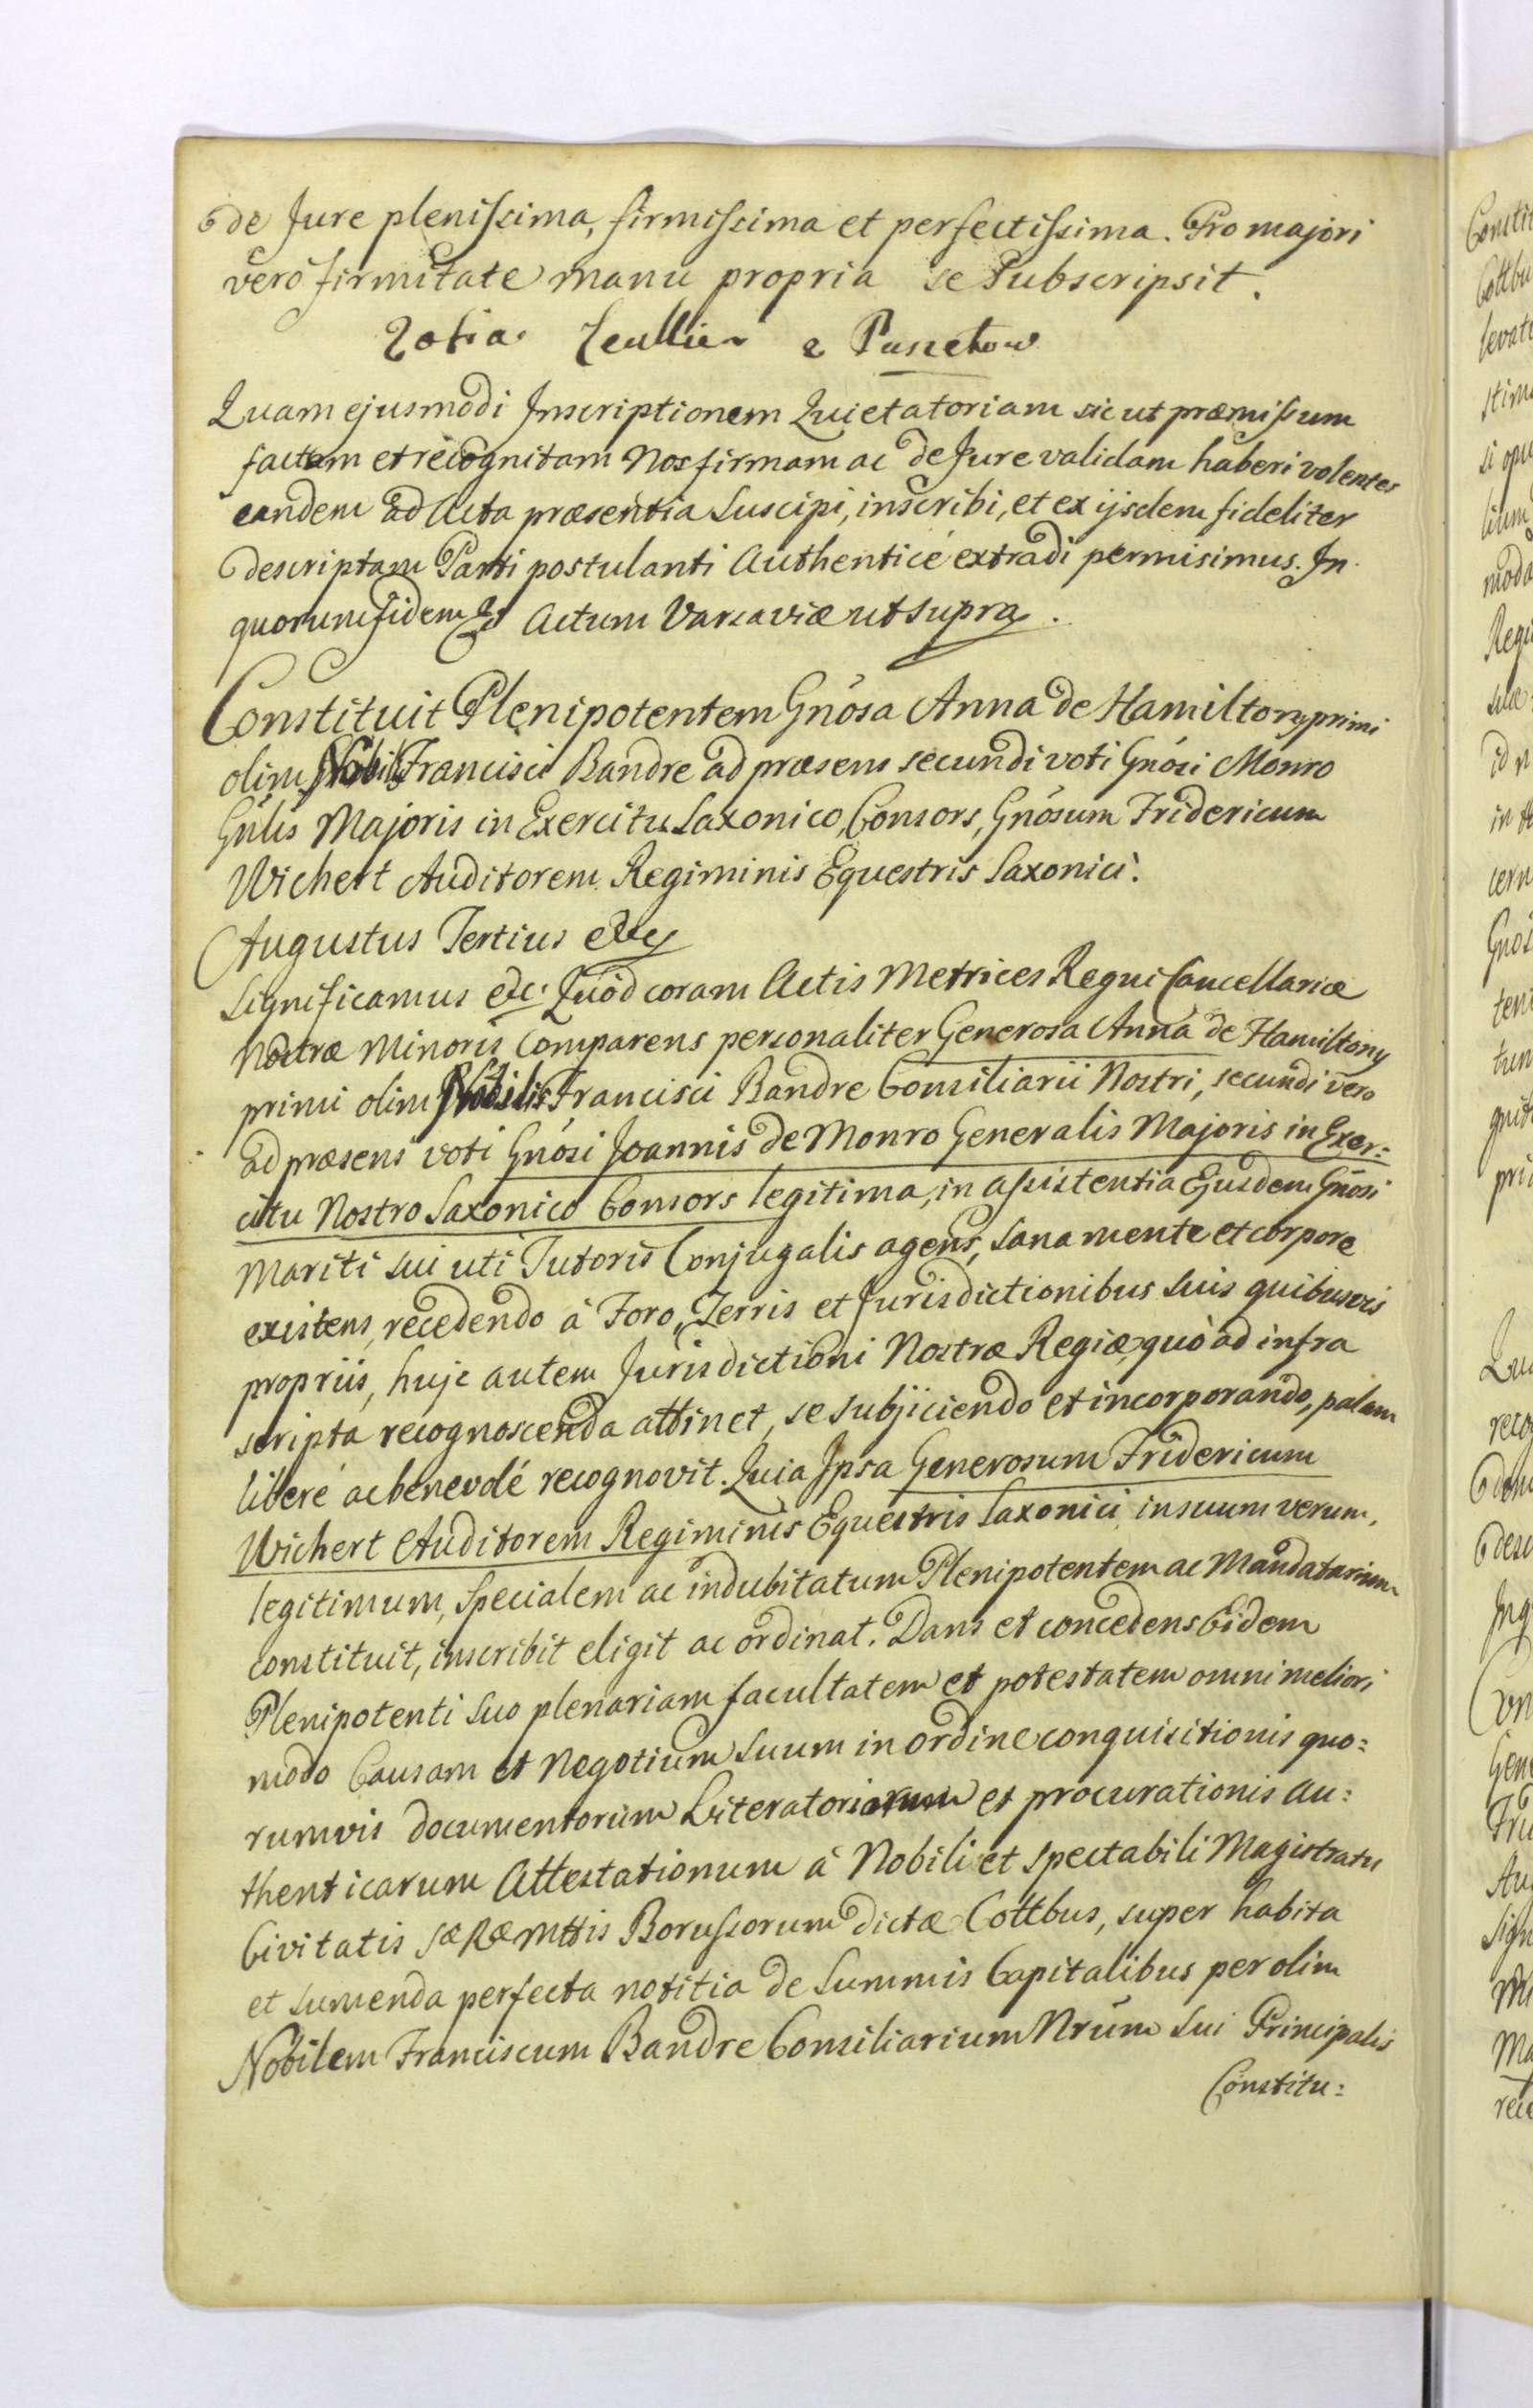 de Jure plenissima, firmissima et perfectissima. Pro majori
vero firmitate manu propria se Subscripsit.
Zofia
Quam ejusmodi Inscriptionem Quietatoriam sicut præmissum
factam et recognitam Nos firmam ac de Jure validam haberi volentes
eandem ad Acta præsentia Suscipi, inscribi, et ex ijsdem fideliter
descriptam Parti postulanti Authenticé extradi permisimus. In
quorum fidem &c Actum Varsaviæ ut supra.
Constituit Plenipotentem Gnosa Anna de Hamiltony primi
olim Nobilis Francisci Bandre ad præsens secundi voti Gnosi Monro
Gnlis Majoris in Exercitu Saxonico, Consors, Gnosum Fridericum
Wichert Auditorem Regiminis Equestris Saxonici.
Augustus Tertius etc
Significamus etc. Quod coram Actis Metrices Regni Cancellariæ
Nostræ Minoris Comparens personaliter Generosa Anna de Hamiltony
primi olim Nobilis Francisci Bandre Consiliarii Nostri, secundi vero
ad præsens voti Gnosi Joannis de Monro Generalis Majoris in Exer:
citu Nostro Saxonico Consors legitima, in assistentia Ejusdem Gnosi
Mariti sui uti Tutoris Conjugalis agens, sana mente et corpore
existens, recedendo à Foro, Terris et Jurisdictionibus suis quibusvis
propriis, huic autem Jurisdictioni Nostræ Regiæ, quò ad infra
scripta recognoscenda attinet, se subjiciendo et incorporando, palam
liberé ac benevolé recognovit. Quia Ipsa Generosum Fridericum
Wichert Auditorem Regiminis Equestris Saxonici in suum verum,
legitimum, Specialem ac indubitatum Plenipotentem ac Mandatarium
constituit, inscribit eligit ac ordinat. Dans et concedens Eidem
Plenipotenti suo plenariam facultatem et potestatem omni meliori
modo Causam et Negotium suum in ordine conquisitionis quo:
rumvis documentorum Literatoriorum et procurationis au:
thenticarum Attestationum à Nobili et Spectabili Magistratu
Civitatis Sæ Ræ Mttis Borussorum dictæ Cottbus, super habita
et sumenda perfecta notitia de Summis Capitalibus per olim
Nobilem Franciscum Bandre Consiliarium Nrum sui Principalis
Constitu: